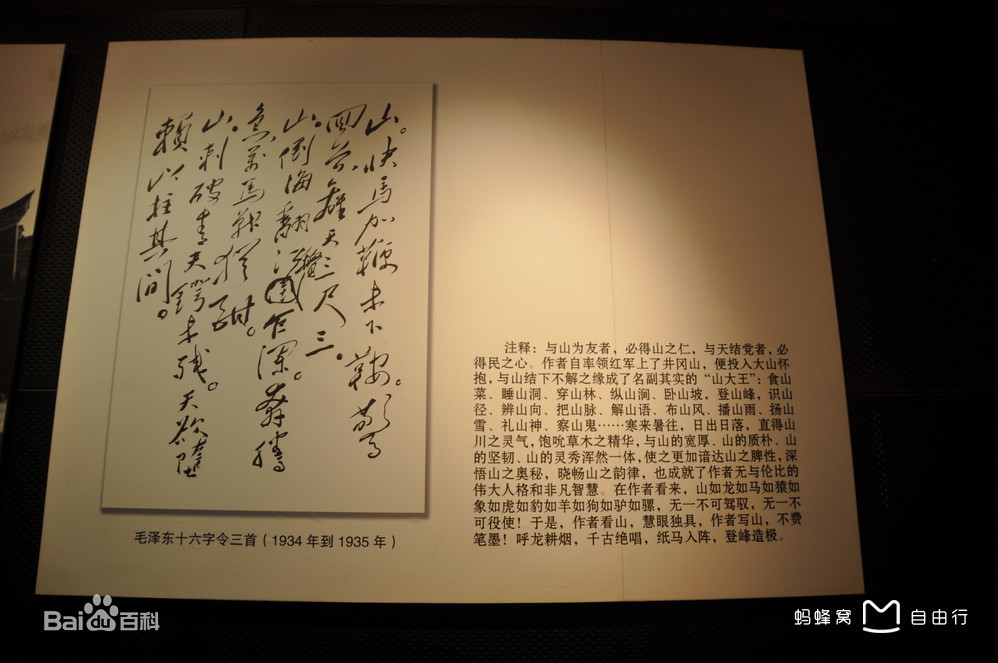 山。快馬加鞭未下鞍。驚
回首，離天三尺三。
山。倒海翻江捲巨瀾。奔騰
急，萬馬戰猶酣。
山。刺破青天鍔未殘。天欲墮
賴以拄其間。
毛泽东十六字令三首（1934 年到 1935 年）
注释：与山为友者，必得山之仁，与天结党者，必
得民之心。作者自率领红军上了井冈山，便投入大山怀
抱，与山结下不解之缘成了名副其实的“山大王”：食山
菜、睡山洞、穿山林、纵山涧、卧山坡，登山峰，识山
径、辨山向、把山脉、解山语、布山风、播山雨、扬山
雪、礼山神、察山鬼……寒来暑往，日出日落，直得山
川之灵气，饱吮草木之精华，与山的宽厚、山的质朴、山
的坚韧、山的灵秀浑然一体，使之更加谙达山之脾性，深
悟山之奥秘，晓畅山之韵律，也成就了作者无与伦比的
伟大人格和非凡智慧。在作者看来，山如龙如马如猿如
象如虎如豹如羊如狗如驴如骡，无一不可驾驭，无一不
可役使！于是，作者看山，慧眼独具，作者写山，不费
笔墨！呼龙耕烟，千古绝唱，纸马入阵，登峰造极。
Bai百科
蚂蜂窝 自由行